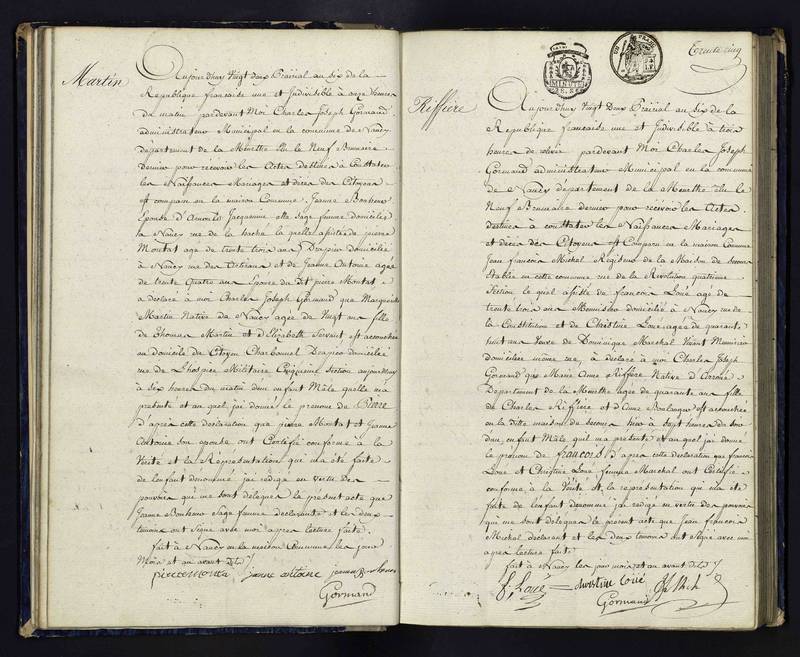 Martin
Aujourdhuy Vingt Deux Prairial an six de la
Republique française une et Indivisible à onze heures
du matin pardevant Moi Charles Joseph Gormand
administrateur Municipal en la commune de Nancy
departement de la Meurthe Elu le Neuf Brumaire
Dernier pour recevoir les Actes destinés à Constater
les Naissances Mariages et décès des Citoyens
est comparu en la maison Commune Jeanne Bonheur
Epouse d'Arnould Jacquemin elle sage femme domiciliée
à Nancy rue de la hache la quelle assistée de pierre
Montat age de trente trois ans Drapier domicilié
à Nancy rue des Artisans et de Jeanne Antoine agée
de trente quatre ans Epouse du dit pierre Montat
a déclaré à moi Charles Joseph Gormand que Marguerite
Martin Native de Nancy agée de Vingt ans fille
de Thomas Martin et d'Elizabeth Servant est accouchée
au domicile du Citoyen Charbonnel Drapier domicilié
rue de L'hospice Militaire Cinquieme Section aujourdhuy
à six heures du matin d'un enfant Mâle quelle ma
presenté et au quel jai donné le prenom de Pierre
D'apres cette déclaration que pierre Montat et Jeanne
Antoine son epouse ont Certifié conforme à la
Verité et la Représentation qui ma été faite
de l'enfant dénommé jai redigé en vertu des
pouvoirs qui me sont delegués le present acte que
Jeanne Bonheur Sage femme declarante et les deux
temoins ont Signé avec moi apres lecture faite.
fait à Nancy en la maison Commune les jour
Mois et an avant dits
pierre monta jeanne antoine jeanne Bonheur
Gormand
Trente cinq
MINUTE
Riffière
Aujourdhuy Vingt Deux Prairial an six de la
Republique française une et Indivisible à trois
heures de relevé pardevant Moi Charles Joseph
Gormand administrateur Municipal en la commune
de Nancy departement de la Meurthe élu le
Neuf Brumaire dernier pour recevoir les Actes
destinés à constater les Naissances Mariages
et décès des Citoyens est Comparu en la maison Commune
Jean françois Michel Regisseur de la Maison de secours
établie en cette commune rue de la Revolution quatrieme
Section le quel assisté de françois Loué agé de
trente trois ans Menuisier domicilié à Nancy rue de
la Constitution et de Christine Loué agée de quarante
huit ans Veuve de Dominique Marechal Vivant Menuisier
domiciliée même rue, à déclaré à moi Charles Joseph
Gormand que Marie Anne Riffière Native d'
Departement de la Meurthe age de quarante ans fille
de Charles Riffière et d'Anne Boulanger est accouchée
en la ditte maison de secours hier à Sept heures du soir
dun enfant Mâle quil ma presenté et au quel jai donné
le prenom de francois d'apres cette déclaration que françois
Loué et Christine Loué femme Marechal ont Certifié
conforme à la Verité et la representation qui ma été
faite de l'enfant denommé jai redigé en vertu des pouvoirs
qui me sont delegués le present acte que Jean françois
Michel déclarant et les deux temoins ont Signé avec moi
apres lecture faite
fait à Nancy les jour mois et an avant dits
f. Loué christine loüé
Gormand